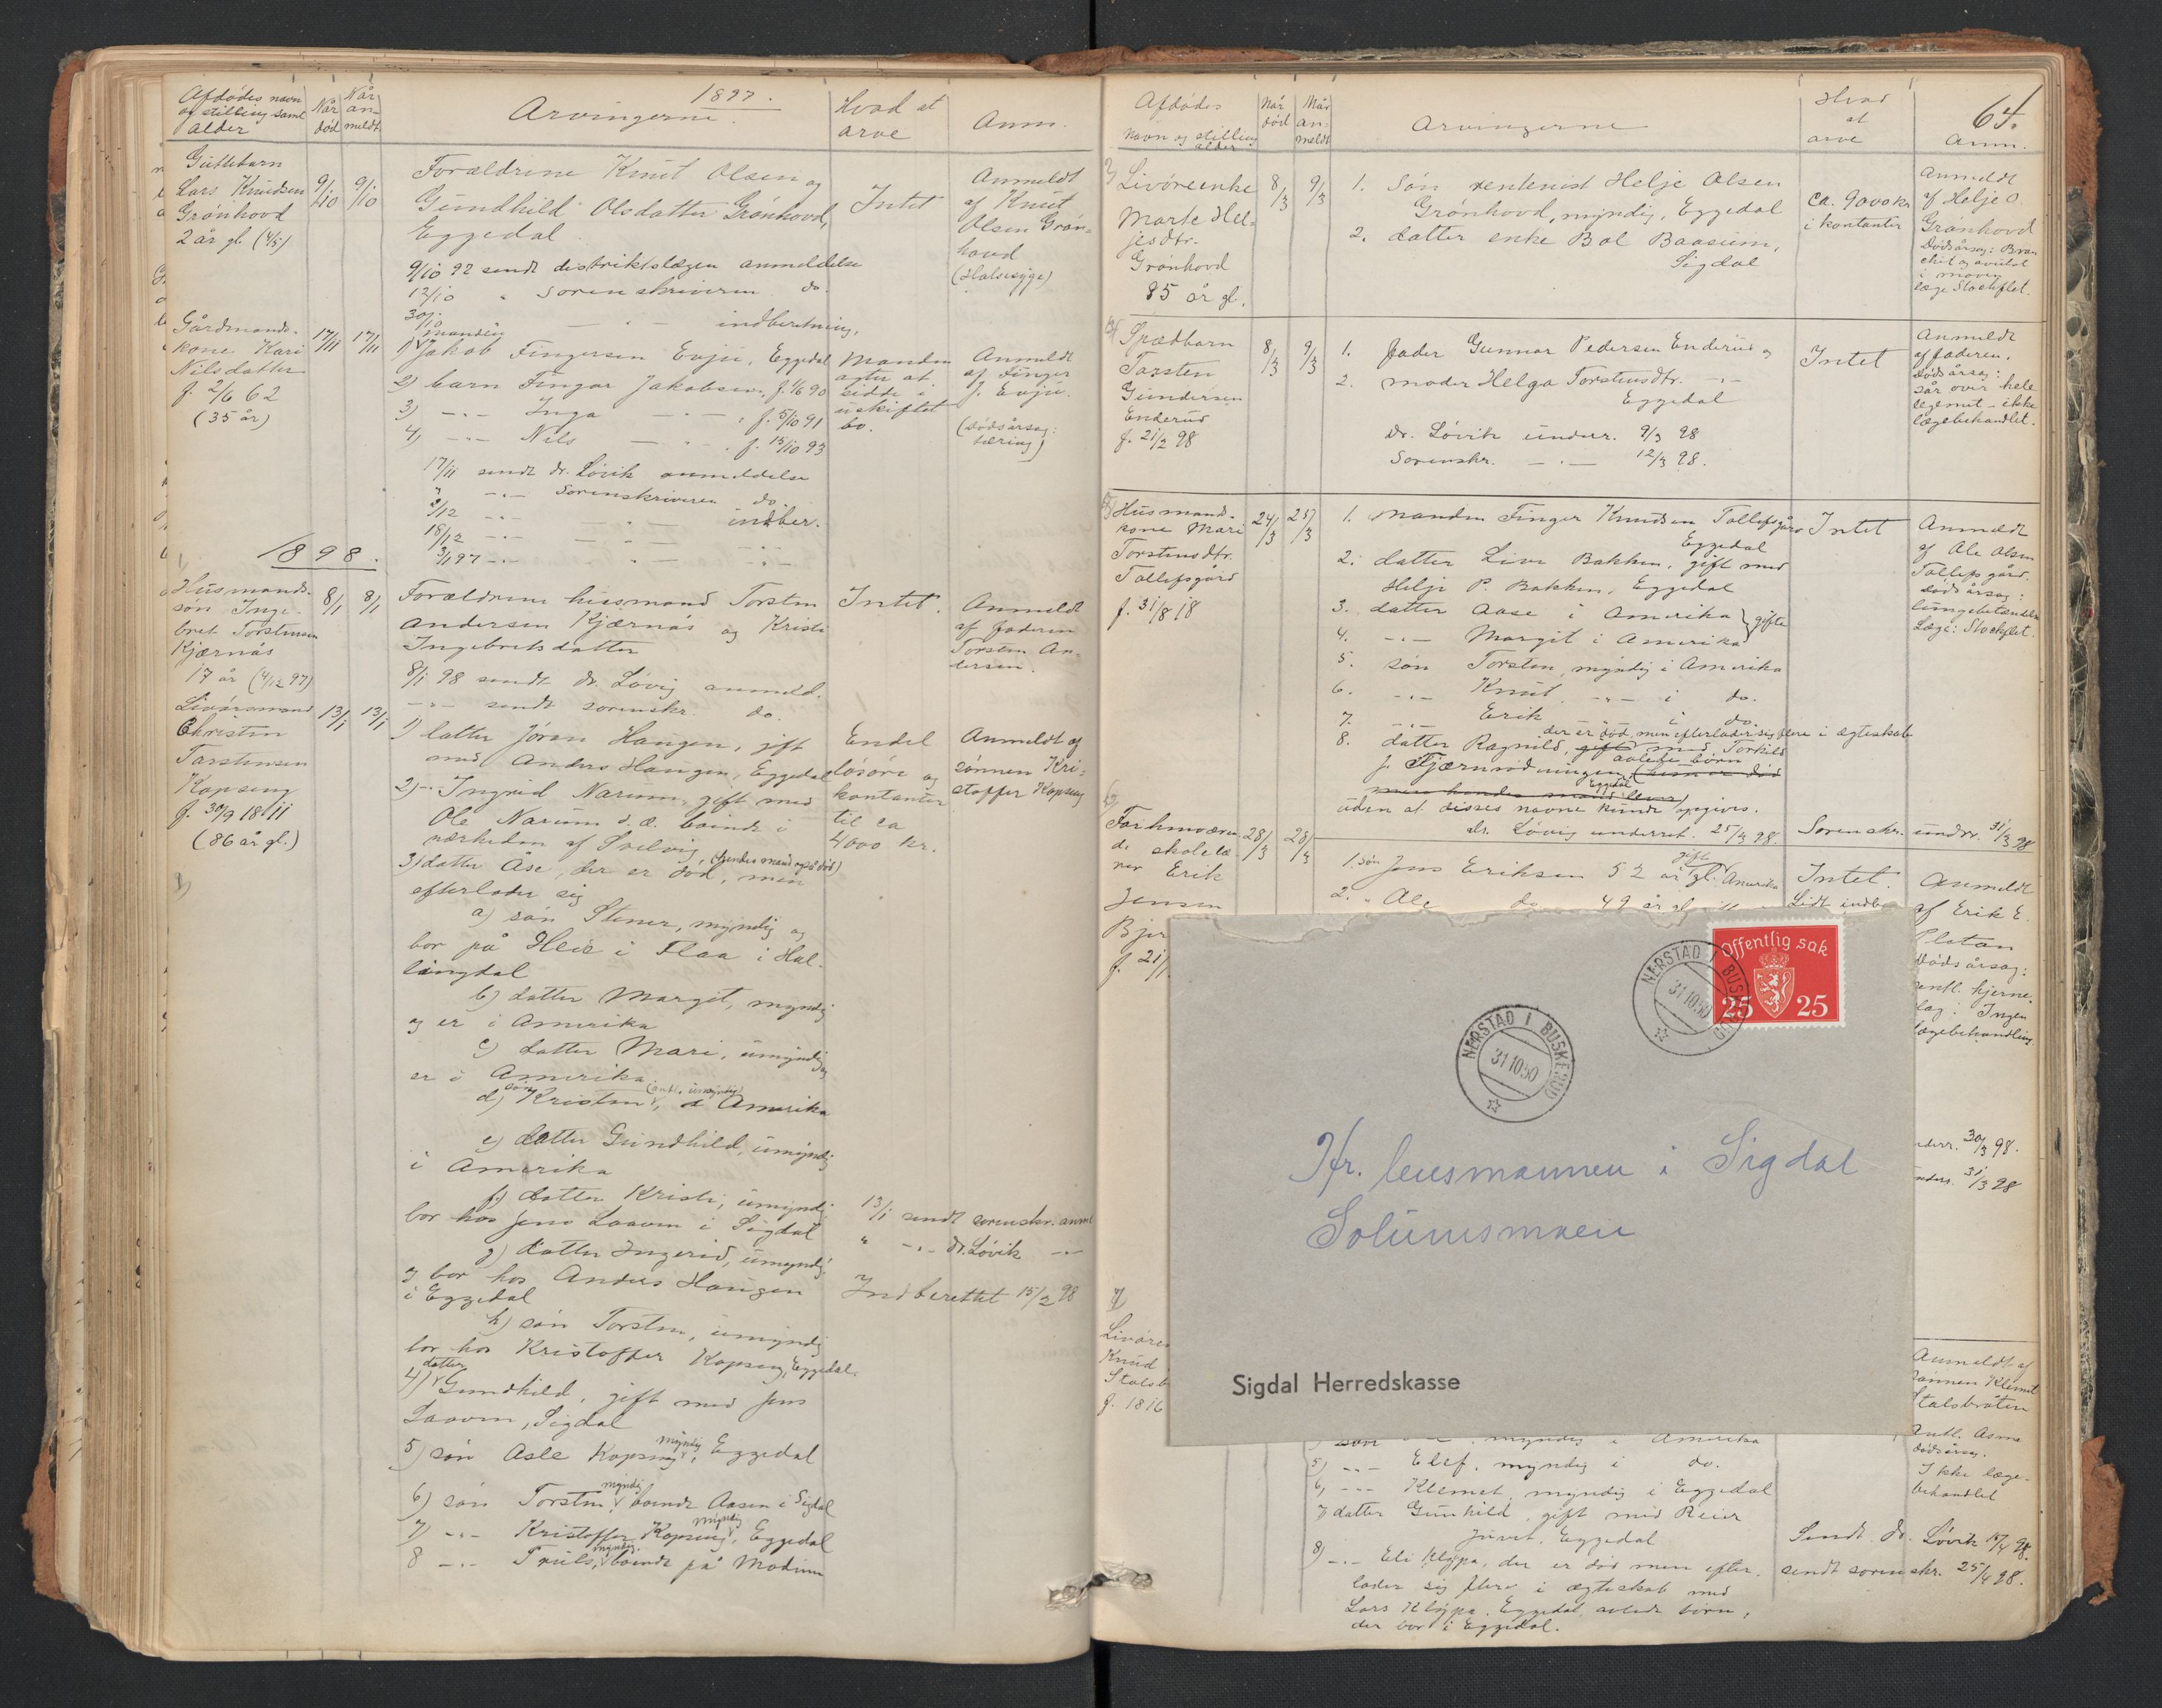 1897.
Afdødes navn
og stilling samt
alder
Når
død
Når
an-
meldt
Arvingerne
Hvad at
arve
Anm.
Guttebarn
Lars Knudsen
Grønhovd
2 år gl. (4/5)
9/10
9/10
Forældrene Knut Olsen og
Gundhild Olsdatter Grønhovd,
Eggedal.
9/10 92 sendt distriktslægen anmeldelse
12/10 " Sorenskriveren do.
30/10 — " — indberetning.
Intet
Anmeldt
af Knut
Olsen Grøn-
hovd
(Halssyge)
Gårdmands-
kone Kari
Nilsdatter
f. 2/6 62
(35 år)
17/11
17/11
manden
1) Jakob Fingersen Evju, Eggedal
2) barn Fingar Jakobsen, f. 1/6 90
3) -"- Inga — " — f. 5/10 91
4) -"- Nils — " — f. 15/10 93
17/11 sendt dr. Løvik anmeldelse
" -"- Sorenskriveren do.
2/12 -"- " — indber.
18/12 -"- — " — -"-
3/1 97 -"- " — -"-
Manden
agter at
sidde i
uskiftet
bo.
Anmeldt
af Finger
J. Evju.
(Dødsårsag:
tæring)
1898.
1)
Husmands-
søn Inge-
bret Torstensen
Kjærnås
17 år (4/12 97)
8/1
8/1
Forældrene husmand Torsten
Andersen Kjærnås og Kristi
Ingebretsdatter
8/1 98 sendt dr. Løvig anmeld.
-"- sendt sorenskr. do.
Intet.
Anmeldt
af faderen
Torsten An-
dersen.
Livøresmand
Christen
Torstensen
Kopseng
f. 30/9 1811
(86 år gl.)
2)
13/1
13/1
1) datter Jøran Haugen, gift
med Anders Haugen, Eggedal
2) -"- Ingrid Narum, gift med
Ole Narum s. æ. boende i
nærheden af Svelvig,
3) datter Åse, der er død, (hendes mand også død) men
efterlader sig
a) søn Stener, myndig og
bor på Heie i Flaa i Hal-
lingdal
b) datter Margit, myndig
og er i Amerika
c) datter Mari, umyndig og
er i Amerika
d) søn Kristen (antl. umyndig), i Amerika
e) datter Gundhild, umyndig
i Amerika
f) datter Kristi, umyndig
bor hos Jens Laaven i Sigdal
g) datter Ingerid, umyndig
og bor hos Anders Haugen
i Eggedal
h) søn Torsten, umyndig
bor hos Kristoffer Kopseng, Eggedal.
4) datter Gundhild, gift med Jens
Laaven, Sigdal
5) søn Asle Kopseng, myndig, Eggedal
6) søn Torsten, myndig, boende Aasen i Sigdal
7) -"- Kristoffer Kopseng, myndig, Eggedal
8 -"- Truls, myndig, boende på Modum
Endel
løsøre og
kontanter
til ca
4000 kr.
Anmeldt af
sønnen Kri-
stoffer Kopseng
13/1 sendt sorenskr. anm.
" -"- dr. Løvik -"-
Indberettet 15/2 98
64.
Afdødes
navn og stilling
alder
Når
død
Når
an-
meldt
Arvingerne
Hvad
at
arve
Anm.
3)
Livøreenke
Marte Hel-
jesdtr.
Grønhovd
85 år gl.
8/3
9/3
1. Søn rentenist Helje Olsen
Grønhovd, myndig, Eggedal
2. datter enke Bol Baasum,
Sigdal
ca. 9000 kr
i kontanter
Anmeldt
af Helje O
Grønhovd
Dødsårsag: Bron
chit og svulst
i maven
læge Stockflet.
4)
Spædbarn
Torsten
Gundersen
Enderud
f. 21/2 98
8/3
9/3
1. fader Gunnar Pedersen Enderud og
2. moder Helga Torstensdtr. -"-
Eggedal
Dr. Løvik underr. 9/3 98
Sorenskr. -"- 12/3 98.
Intet
Anmeldt
af faderen.
Dødsårsag:
Sår over hele
legemet - ikke
lægebehandlet.
5)
Husmands-
kone Mari
Torstensdtr.
Tollefsgård
f. 31/8 18
24/3
25/3
1. manden Finger Knudsen Tollefsgård
Eggedal
2. datter Live Bakken, gift med
Helje P. Bakken, Eggedal
3. datter Aase i Amerika } gifte
4. -"- Margit i Amerika
5. søn Torsten, myndig i Amerika
6. -"- Knut -"- i do.
7. -"- Erik i do
der er død, men efterlader sig flere i ægteskab
8. datter Ragnild, gift med Torkild
avlede børn
J. Fjærnrodningen (som er død
Eggedal
men hendes mand lever)
uden at disses navne kunde opgives.
dr. Løvig underret. 25/3 98. Sorenskr. underr. 31/3 98
Intet
Anmeldt
af Ole Olsen
Tollefsgård.
Dødsårsag:
lungebetændelse
Læge: Stockflet.
6)
Forhenværen-
de skolelæ-
rer Erik
Jensen
Bjør
f. 21/1
28/3
28/3
1. søn Jens Eriksen 52 år gl. gift Amerika
2. " Ole do. 49 år gl.
Intet.
Lidt indb
Anmeldt
af Erik E.
Pletan
Dødsårsag:
antl. hjerne-
slag. Ingen
lægebehandling.
underr. 30/3 98.
unders. 31/3 98
Offentlig sak
25 25
NERSTAD I BUSKERUD
31.10.50
NERSTAD I BUSKERUD
31.10.50
Hr. lensmannen i Sigdal
Solumsmoen
Sigdal Herredskasse
7)
Livøres
Knud
Stalsb
f. 1816
søn myndig i Amerika
5) -"- Elef, myndig i do.
6) -"- Klemet, myndig i Eggedal
7) datter Gunhild, gift med Reier
Juvet, Eggedal
8) -"- Eli Kløpa, der er død men efter-
lader sig flere i ægteskab med
Lars Kløpa, Eggedal, avlede børn,
der bor i Eggedal.
Anmeldt af
sønnen Klemet
Stalsbråten
Antl. Asma
dødsårsag.
Ikke læge-
behandlet
Sendt dr. Løvik 15/4 98.
sendt sorenskr. 25/4 98.